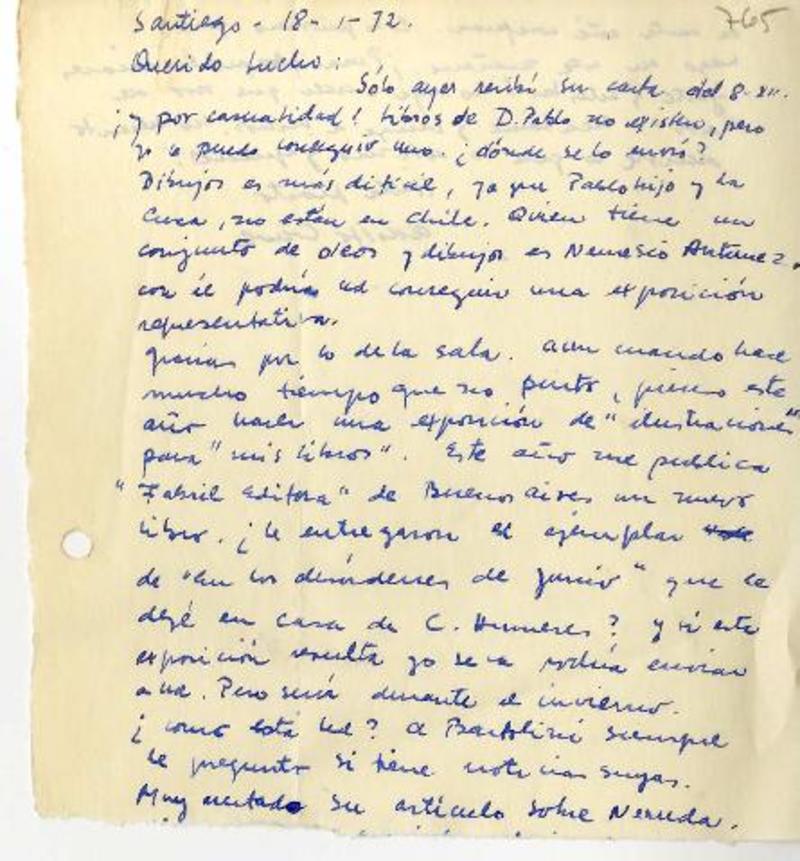 765
Santiago - 18-1-72.
Querido Lucho:
Sólo ayer recibí su carta del 8-XII.
¡y por casualidad! Libros de D. Pablo no existen, pero
yo le puedo conseguir uno. ¿dónde se lo envío?
Dibujos es más difícil, ya que Pablo hijo y la
Cuca, no están en Chile. Quien tiene un
conjunto de oleos y dibujos es Nemesio Antunez,
con él podría ud conseguir una exposición
representativa.
Gracias por lo de la sala. Aun cuando hace
mucho tiempo que no pinto, pienso este
año hacer una exposición de "ilustraciones"
para "mis libros". Este año me publica
"Fabril Editora" de Buenos Aires un nuevo
libro. ¿Le entregaron el ejemplar
de "En los desórdenes de junio" que le
dejé en casa de C. Humeres? y si esta
exposición resulta yo se la podría enviar
a ud. Pero sería durante el invierno.
¿como está Ud? a Bartolini siempre
le pregunto si tiene noticias suyas.
Muy acertado su artículo sobre Neruda.